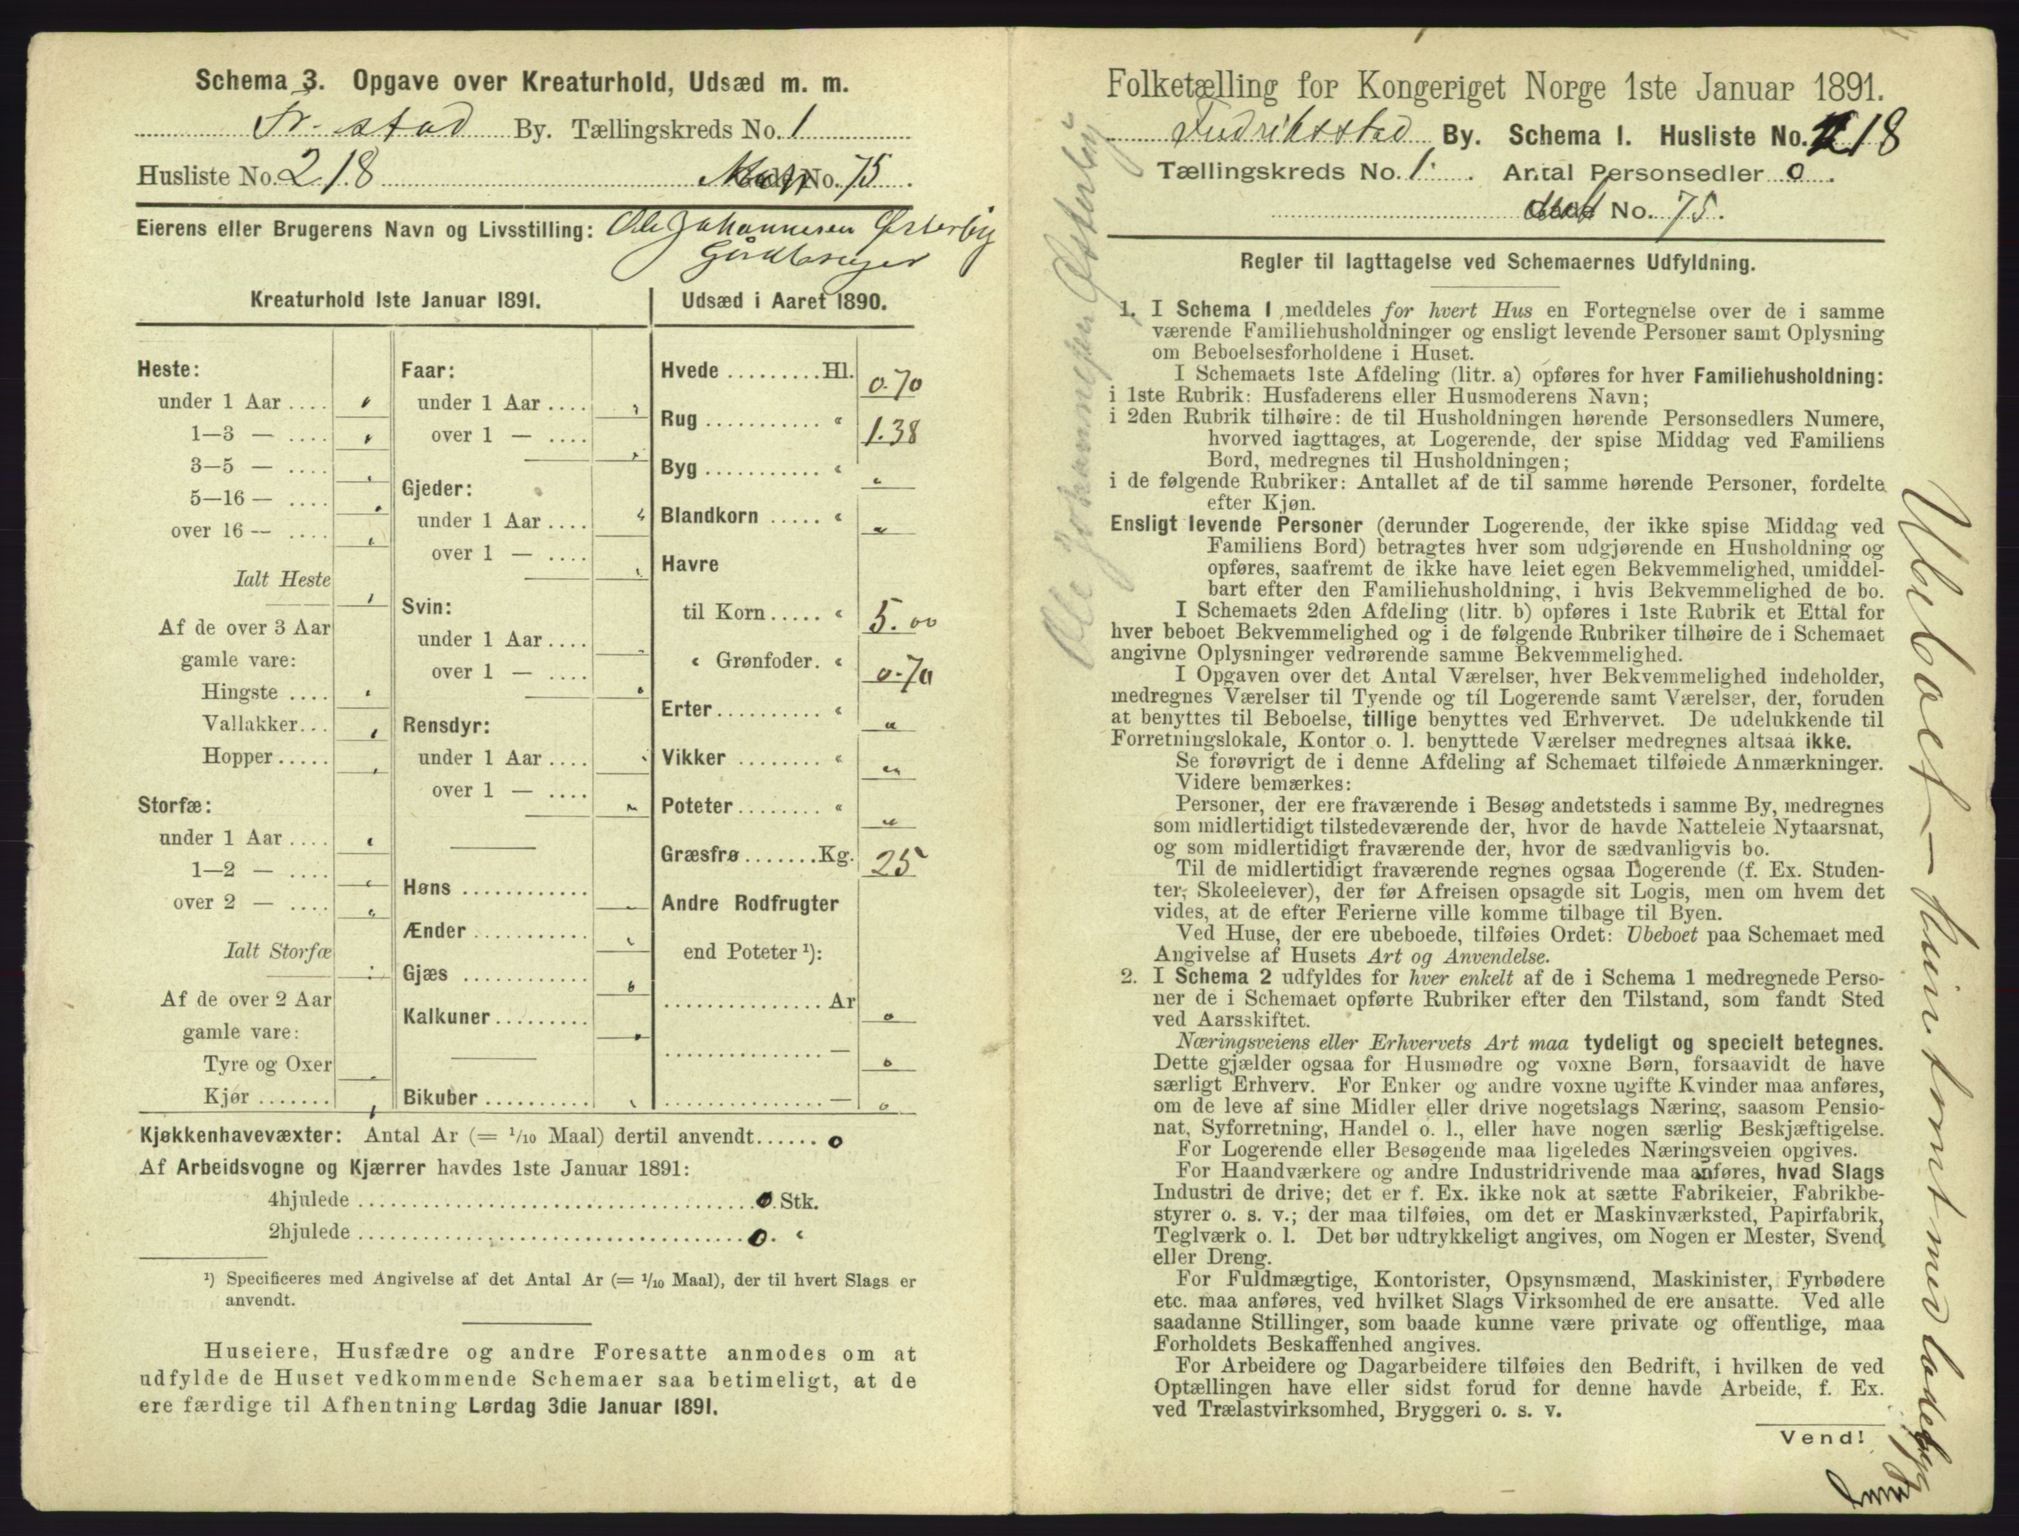 Schema 3. Opgave over Kreaturhold, Udsæd m. m.
Fr.stad By. Tællingskreds No. 1
Husliste No. 218 No. 75.
Eierens eller Brugerens Navn og Livsstilling: Ole Johannesen Østerby
Gårdbruger
Kreaturhold 1ste Januar 1891.
Heste:
under 1 Aar ....
1—3 — ....
3—5 — ....
5—16 — ....
over 16 — ....
Ialt Heste
Af de over 3 Aar
gamle vare:
Hingste ....
Vallakker...
Hopper.....
Storfæ:
under 1 Aar ...
1—2 — ....
over 2 — ....
Ialt Storfæ
Af de over 2 Aar
gamle vare:
Tyre og Oxer
Kjør .......
Faar:
under 1 Aar ....
over 1 — ....
Gjeder:
under 1 Aar ....
over 1 — ....
Svin:
under 1 Aar ....
over 1 — ....
Rensdyr:
under 1 Aar ....
over 1 — ....
Høns ............
Ænder ..........
Gjæs ............
Kalkuner.........
Bikuber ..........
Udsæd i Aaret 1890.
Hvede .........Hl. 0.70
Rug ........... “ 1.38
Byg ........... “ "
Blandkorn ..... “ "
Havre
til Korn..... “ 5.00
“ Grønfoder. “ 0.70
Erter.......... “ "
Vikker ........ “ "
Poteter ........ “ "
Græsfrø.......Kg. 25
Andre Rodfrugter
end Poteter ¹):
................ Ar 0
................ — 0
................ — 0
Kjøkkenhavevæxter: Antal Ar (= 1/10 Maal) dertil anvendt...... 0
Af Arbeidsvogne og Kjærrer havdes 1ste Januar 1891:
4hjulede ........................................ 0 Stk.
2hjulede ........................................ 0. “
¹) Specificeres med Angivelse af det Antal Ar (= 1/10 Maal), der til hvert Slags er
anvendt.
Huseiere, Husfædre og andre Foresatte anmodes om at
udfylde de Huset vedkommende Schemaer saa betimeligt, at de
ere færdige til Afhentning Lørdag 3die Januar 1891.
Ole Johannesen Østerby
Folketælling for Kongeriget Norge 1ste Januar 1891.
Fredriksstad By. Schema 1. Husliste No. 218
Tællingskreds No. 1. Antal Personsedler 0
No. 75.
Regler til Iagttagelse ved Schemaernes Udfyldning.
1. I Schema 1 meddeles for hvert Hus en Fortegnelse over de i samme
værende Familiehusholdninger og ensligt levende Personer samt Oplysning
om Beboelsesforholdene i Huset.
I Schemaets 1ste Afdeling (litr. a) opføres for hver Familiehusholdning:
i 1ste Rubrik: Husfaderens eller Husmoderens Navn;
i 2den Rubrik tilhøire: de til Husholdningen hørende Personsedlers Numere,
hvorved iagttages, at Logerende, der spise Middag ved Familiens
Bord, medregnes til Husholdningen;
i de følgende Rubriker: Antallet af de til samme hørende Personer, fordelte
efter Kjøn.
Ensligt levende Personer (derunder Logerende, der ikke spise Middag ved
Familiens Bord) betragtes hver som udgjørende en Husholdning og
opføres, saafremt de ikke have leiet egen Bekvemmelighed, umiddel-
bart efter den Familiehusholdning, i hvis Bekvemmelighed de bo.
I Schemaets 2den Afdeling (litr. b) opføres i 1ste Rubrik et Ettal for
hver beboet Bekvemmelighed og i de følgende Rubriker tilhøire de i Schemaet
angivne Oplysninger vedrørende samme Bekvemmelighed.
I Opgaven over det Antal Værelser, hver Bekvemmelighed indeholder,
medregnes Værelser til Tyende og til Logerende samt Værelser, der, foruden
at benyttes til Beboelse, tillige benyttes ved Erhvervet. De udelukkende til
Forretningslokale, Kontor o. l. benyttede Værelser medregnes altsaa ikke.
Se forøvrigt de i denne Afdeling af Schemaet tilføiede Anmærkninger.
Videre bemærkes:
Personer, der ere fraværende i Besøg andetsteds i samme By, medregnes
som midlertidigt tilstedeværende der, hvor de havde Natteleie Nytaarsnat,
og som midlertidigt fraværende der, hvor de sædvanligvis bo.
Til de midlertidigt fraværende regnes ogsaa Logerende (f. Ex. Studen-
ter, Skoleelever), der før Afreisen opsagde sit Logis, men om hvem det
vides, at de efter Ferierne ville komme tilbage til Byen.
Ved Huse, der ere ubeboede, tilføies Ordet: Ubeboet paa Schemaet med
Angivelse af Husets Art og Anvendelse.
2. I Schema 2 udfyldes for hver enkelt af de i Schema 1 medregnede Perso-
ner de i Schemaet opførte Rubriker efter den Tilstand, som fandt Sted
ved Aarsskiftet.
Næringsveiens eller Erhvervets Art maa tydeligt og specielt betegnes.
Dette gjælder ogsaa for Husmødre og voxne Børn, forsaavidt de have
særligt Erhverv. For Enker og andre voxne ugifte Kvinder maa anføres,
om de leve af sine Midler eller drive nogetslags Næring, saasom Pensio-
nat, Syforretning, Handel o. l., eller have nogen særlig Beskjæftigelse.
For Logerende eller Besøgende maa ligeledes Næringsveien opgives.
For Haandværkere og andre Industridrivende maa anføres, hvad Slags
Industri de drive; det er f. Ex. ikke nok at sætte Fabrikeier, Fabrikbe-
styrer o. s. v.; der maa tilføies, om det er Maskinværksted, Papirfabrik,
Teglværk o. l. Det bør udtrykkeligt angives, om Nogen er Mester, Svend
eller Dreng.
For Fuldmægtige, Kontorister, Opsynsmænd, Maskinister, Fyrbødere
etc. maa anføres, ved hvilket Slags Virksomhed de ere ansatte. Ved alle
saadanne Stillinger, som baade kunne være private og offentlige, maa
Forholdets Beskaffenhed angives.
For Arbeidere og Dagarbeidere tilføies den Bedrift, i hvilken de ved
Optællingen have eller sidst forud for denne havde Arbeide, f. Ex.
ved Trælastvirksomhed, Bryggeri o. s. v.
Vend!
Ubeboet – kun tomt med ladebyg